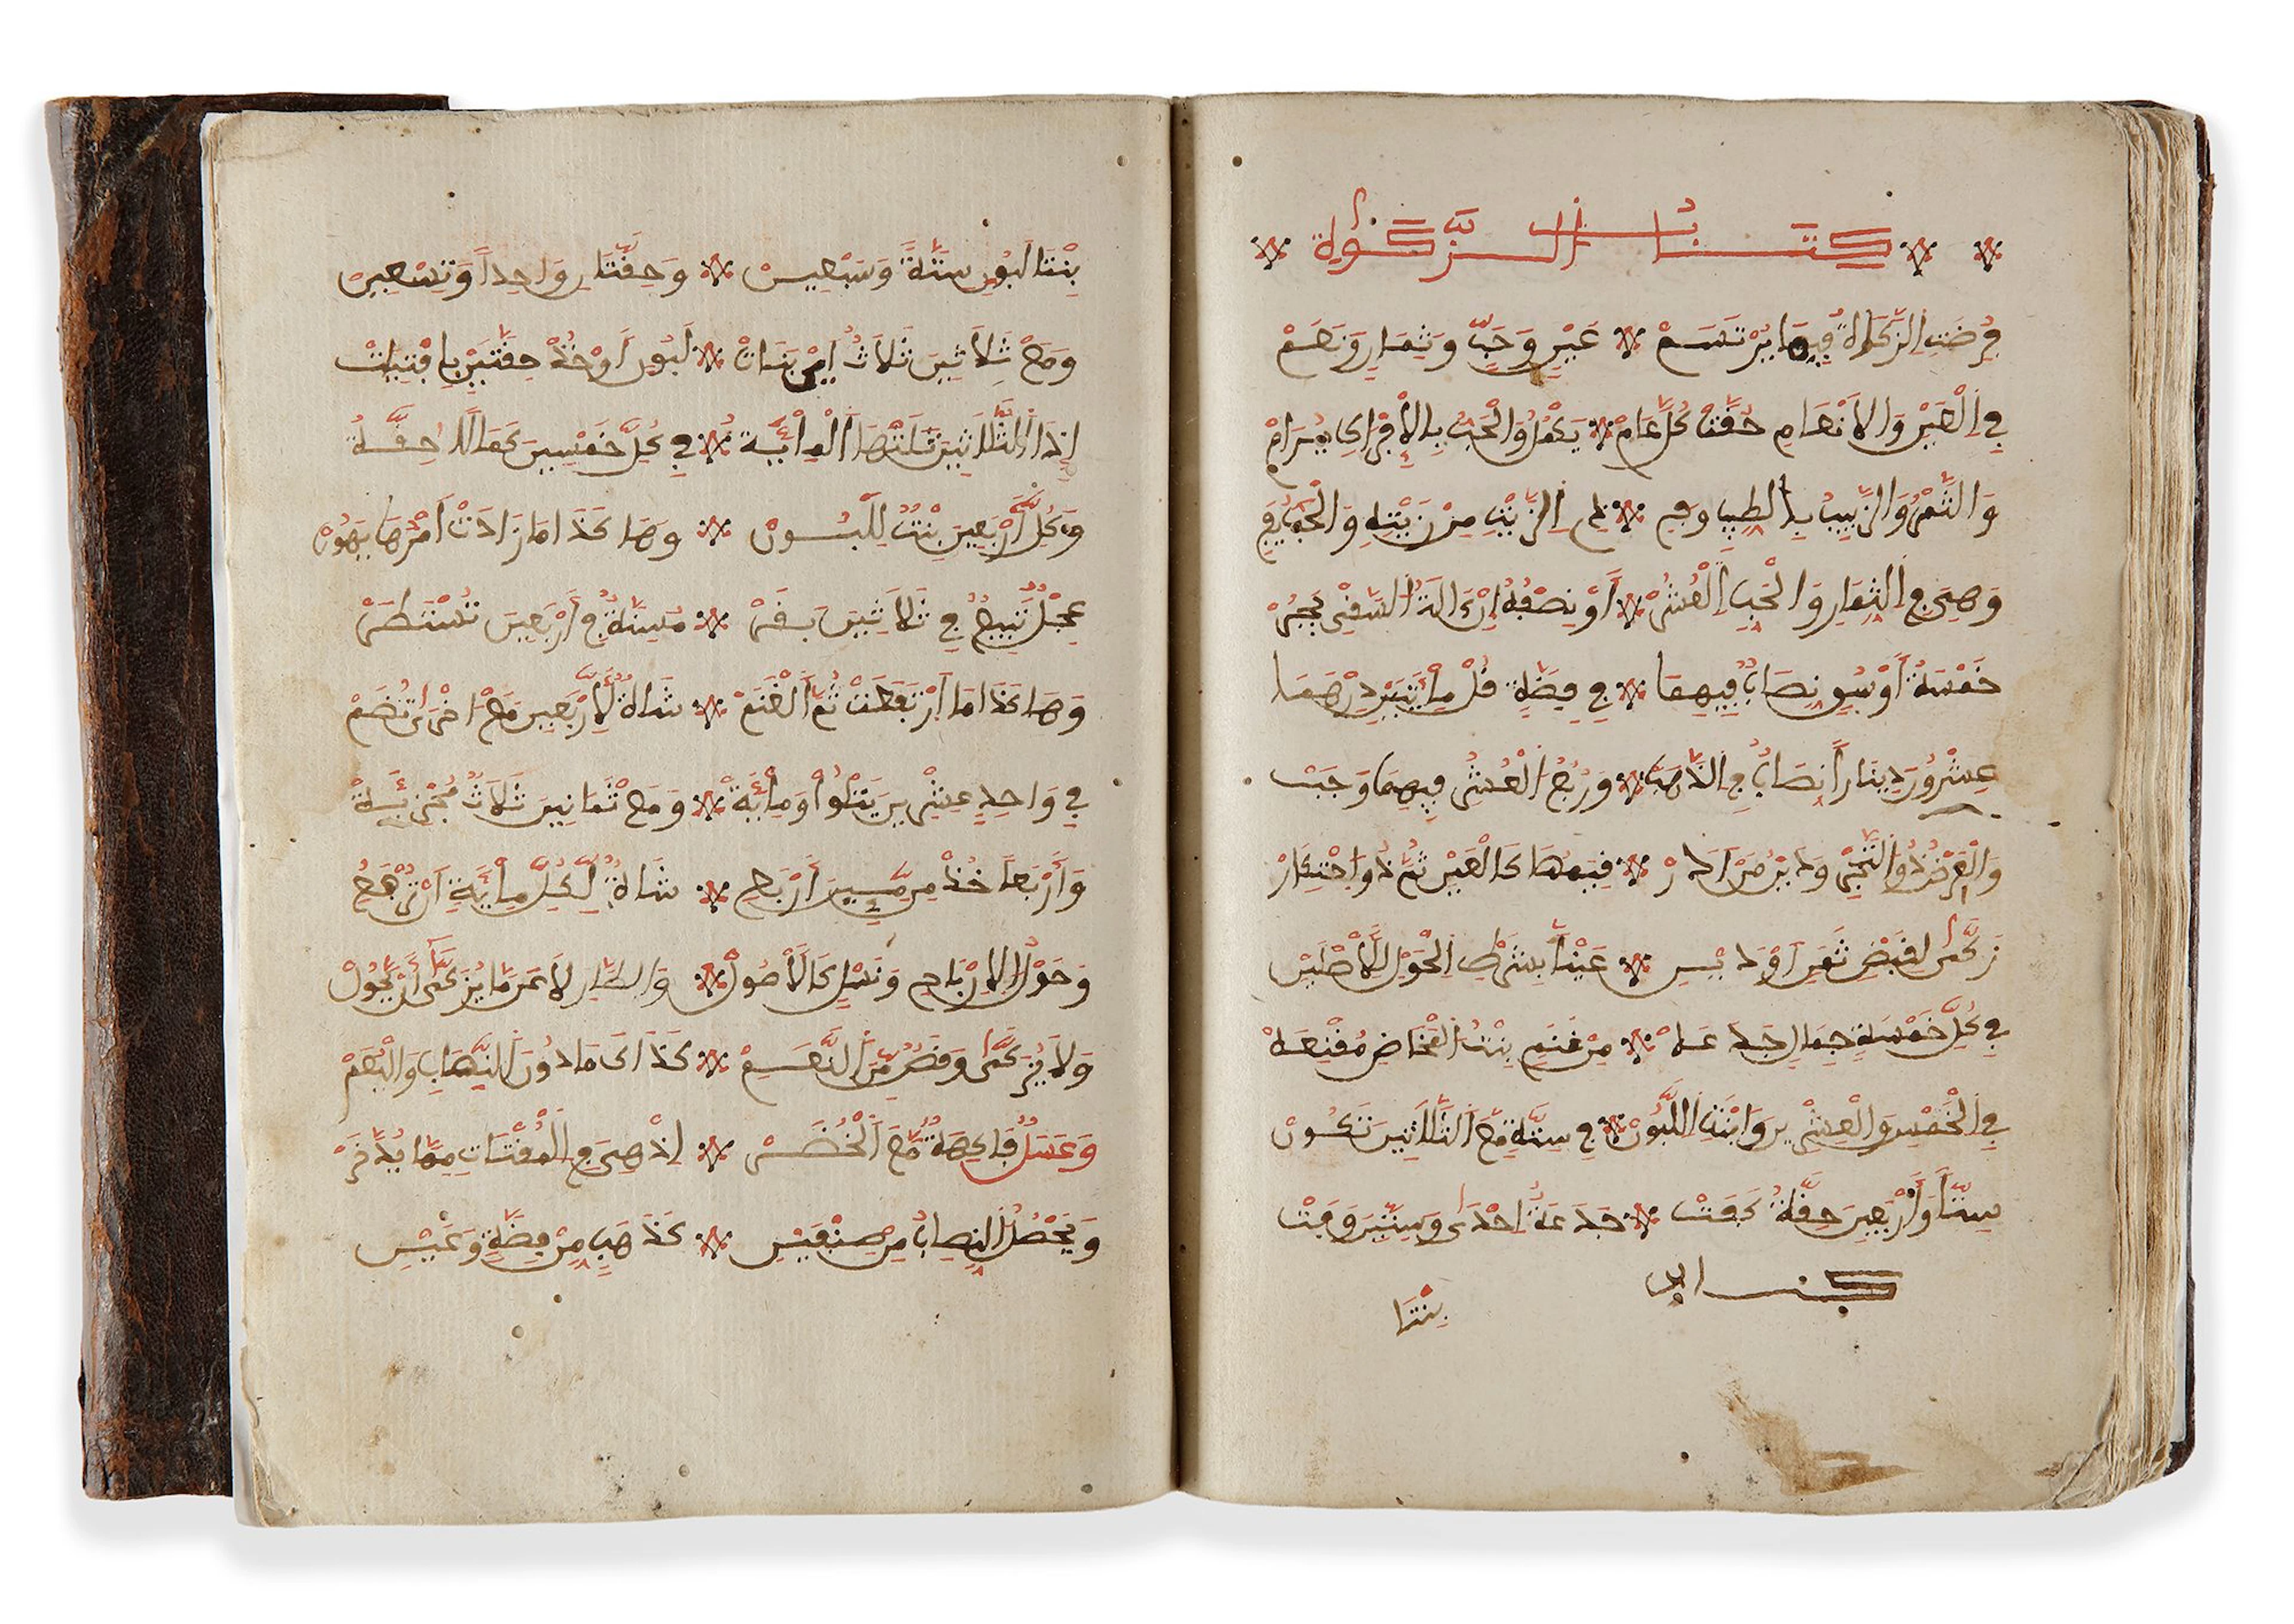 كتاب الزكوة
فرضت الزكاة فيما يرتسم عين وحب وثمار ونعم
في العين والأنعام حقت كل عام يكمل والحب بالإفراك يرام
والتمر والزبيب بالطيب وفي ذي الزيت من زيته والحب يفي
وهي في الثمار والحب العشر أو نصفه إن ءالة السقي يجر
خمسة أوسق نصاب فيهما في فضة قل مائتين درهما
عشرون دينارا نصاب في الذهب وربع العشر فيهما وجبت
والعرض ذو التجر ودين من أدار قيمتها كالعين ثم ذو احتكار
زكى لقبض ثمن أو دين عينا بشرط الحول للأصلين
في كل خمسة جمال جذعه من غنم بنت المخاض مقنعه
في الخمس والعشرين وابنت اللبون في ستة مع الثلاثين تكون
ستا وأربعين حقة كفت جذعة إحدى وستين وفت
بنتا
بنتا لبون ستة وسبعين وحقتان واحدا وتسعين
ومع ثلاثين ثلاث اي بنات لبون أو خذ حقتين بافتيات
إذا الثلاثين تلتها المائة في كل خمسين كمالا حقة
وكل أربعين بنت للبون وهاكذا ما زادت أمرها يهون
عجل تبيع في ثلاثين بقر مسنة في أربعين تستطر
وهاكذا ما ارتفعت ثم الغنم شاة لأربعين مع اخرى تضم
في واحد عشرين يتلوا ومائة ومع ثمانين ثلاث مجزئة
وأربعا خذ من مئين أربع شاة لكل مائة ان ترفع
وحول الارباح ونسل كالأصول والطار لا عن ما يزكى أن يحول
ولا يزكى وقص من النعم كذاك ما دون النصاب وليعم
وعسل فاكهة مع الخضر إذ هي في المقتات مما يدخر
ويحصل النصاب من صنفين كذهب من فضة وعين